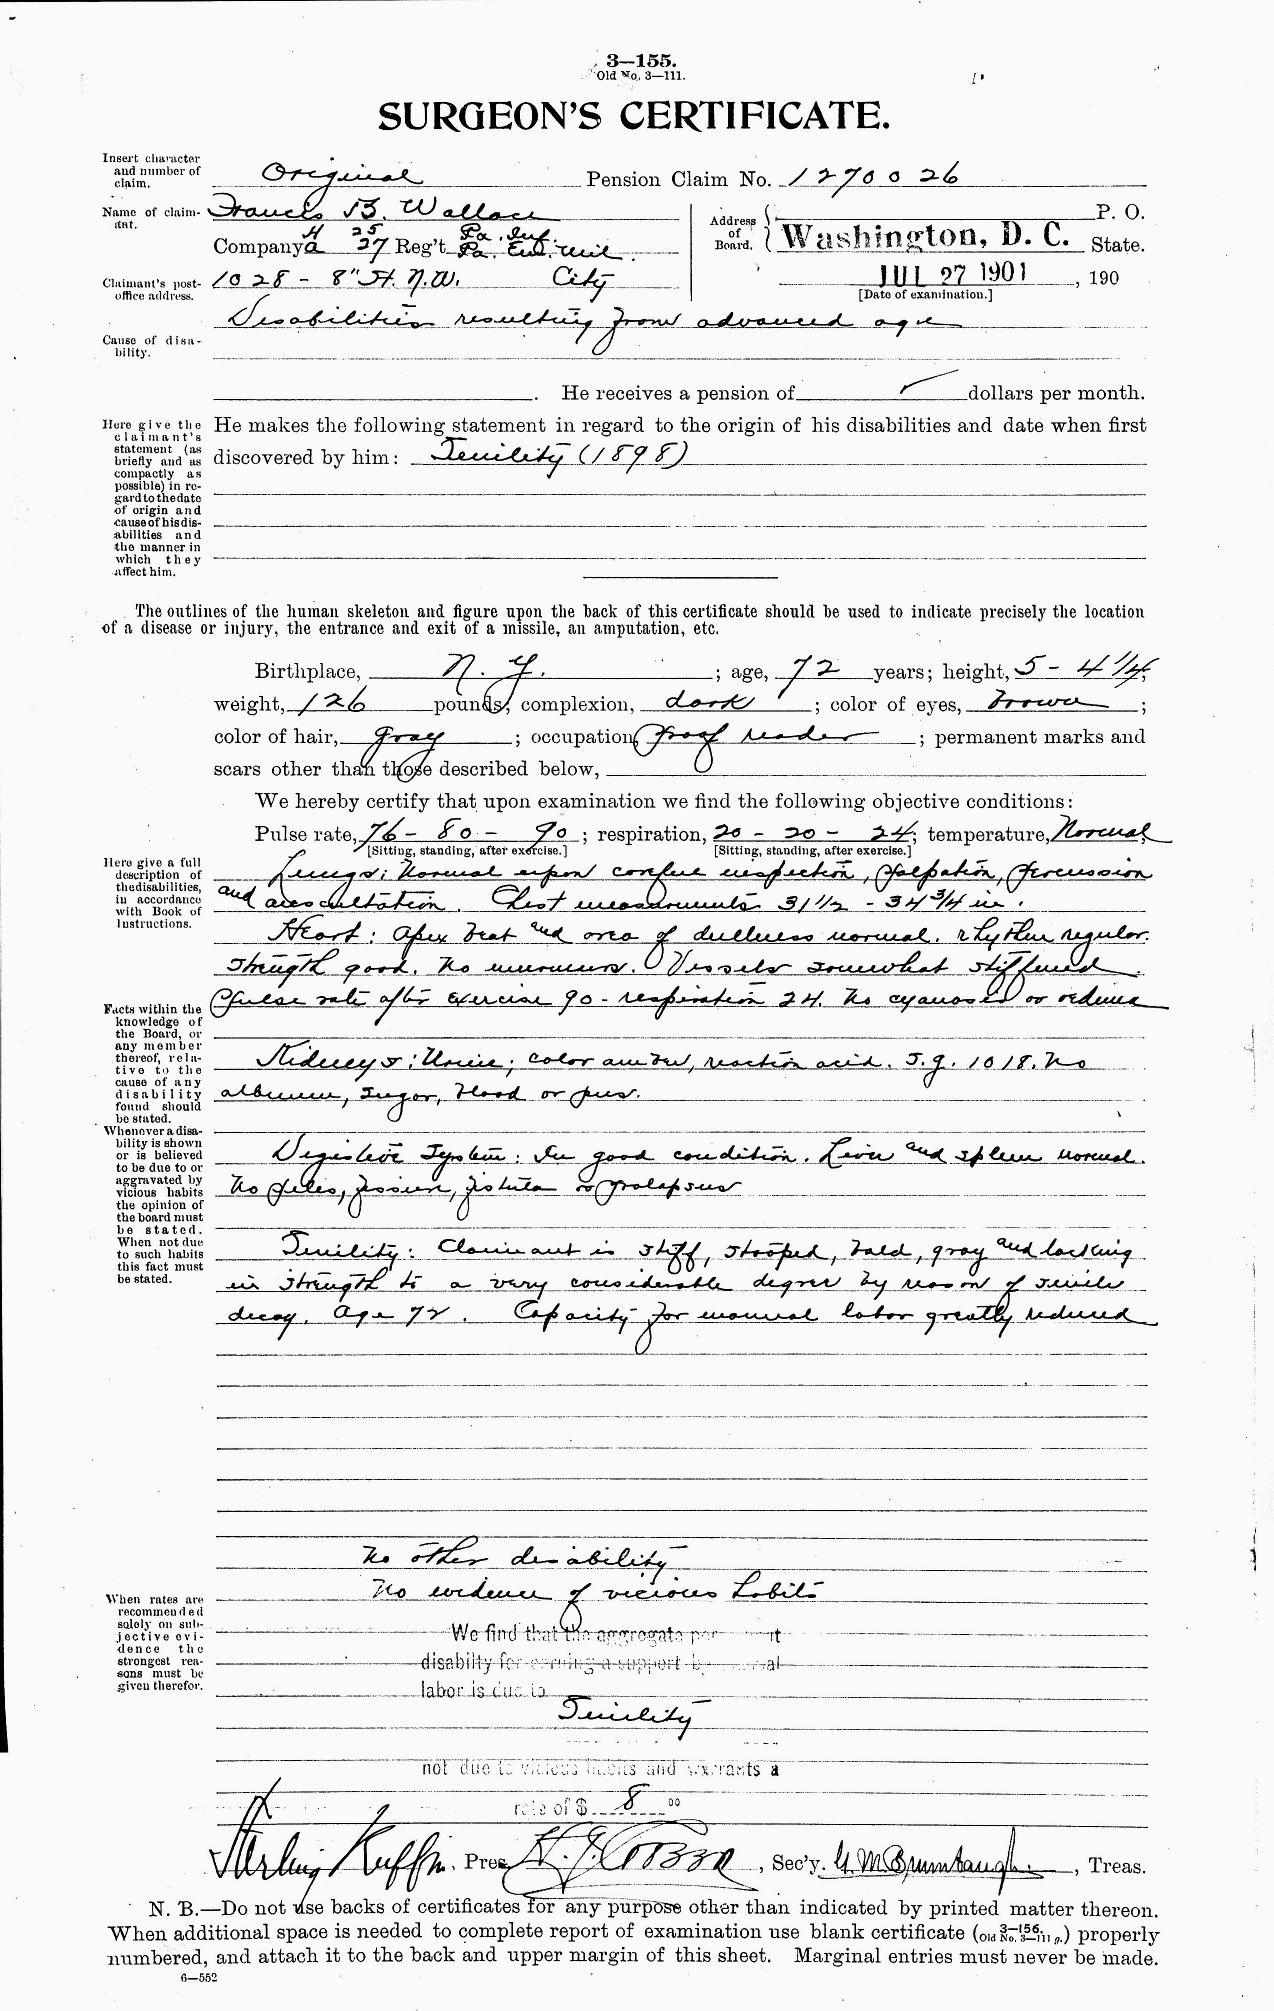 3—155.
Old No. 3—111.
SURGEON'S CERTIFICATE.
Insert character and number of claim.
Original Pension Claim No. 1270026
Name of claimant.
Francis B. Wallace
Address of Board. P. O.
Washington, D. C. State.
H 25 Pa. Inf.
Company a 27 Reg't Pa. Emil.
Claimant's post-office address.
1028 - 8" St. N.W. City
JUL 27 1901, 190
[Date of examination.]
Disabilities resulting from advanced age
Cause of disability.
. He receives a pension of dollars per month.
Here give the claimant's statement (as briefly and as compactly as possible) in regard to the date of origin and cause of his disabilities and the manner in which they affect him.
He makes the following statement in regard to the origin of his disabilities and date when first
discovered by him: Senility (1898)
The outlines of the human skeleton and figure upon the back of this certificate should be used to indicate precisely the location
of a disease or injury, the entrance and exit of a missile, an amputation, etc.
Birthplace, N. Y. ; age, 72 years; height, 5 - 4 1/4;
weight, 126 pounds; complexion, dark ; color of eyes, brown ;
color of hair, gray ; occupation, proof reader ; permanent marks and
scars other than those described below,
We hereby certify that upon examination we find the following objective conditions:
Pulse rate, 76 - 80 - 90 ; respiration, 20 - 20 - 24; temperature, Normal;
[Sitting, standing, after exercise.] [Sitting, standing, after exercise.]
Here give a full description of the disabilities, in accordance with Book of Instructions.
Lungs: Normal upon careful inspection, palpation, percussion
and auscultation. Chest measurements 31 1/2 - 34 3/4 in.
Heart: Apex beat and area of dullness normal. rhythm regular.
Strength good. No murmurs. Vessels somewhat stiffened.
Pulse rate after exercise 90 - respiration 24. No cyanosis or oedema
Facts within the knowledge of the Board, or any member thereof, relative to the cause of any disability found should be stated.
Kidneys: Urine; color amber, reaction acid. S.g. 1018. No
albumen, sugar, blood or pus.
Whenever a disability is shown or is believed to be due to or aggravated by vicious habits the opinion of the board must be stated. When not due to such habits this fact must be stated.
Digestive System: In good condition. Liver and spleen normal.
No piles, fissure, fistula or prolapsus
Senility: Claimant is stiff, stooped, bald, gray and lacking
in strength to a very considerable degree by reason of senile
decay. Age 72. Capacity for manual labor greatly reduced
No other disability
No evidence of vicious habits
When rates are recommended solely on subjective evidence the strongest reasons must be given therefor.
We find that the aggregate per t
disabilty for earning a support by manual
labor is due to
Senility
not due to vicious habits and warrants a
rate of $ 8 00
Sterling Ruffin, Pres. , Sec'y. G. M. Brumbaugh , Treas.
N. B.—Do not use backs of certificates for any purpose other than indicated by printed matter thereon.
When additional space is needed to complete report of examination use blank certificate (3—156. Old No. 3—111 g.) properly
numbered, and attach it to the back and upper margin of this sheet. Marginal entries must never be made.
6—552